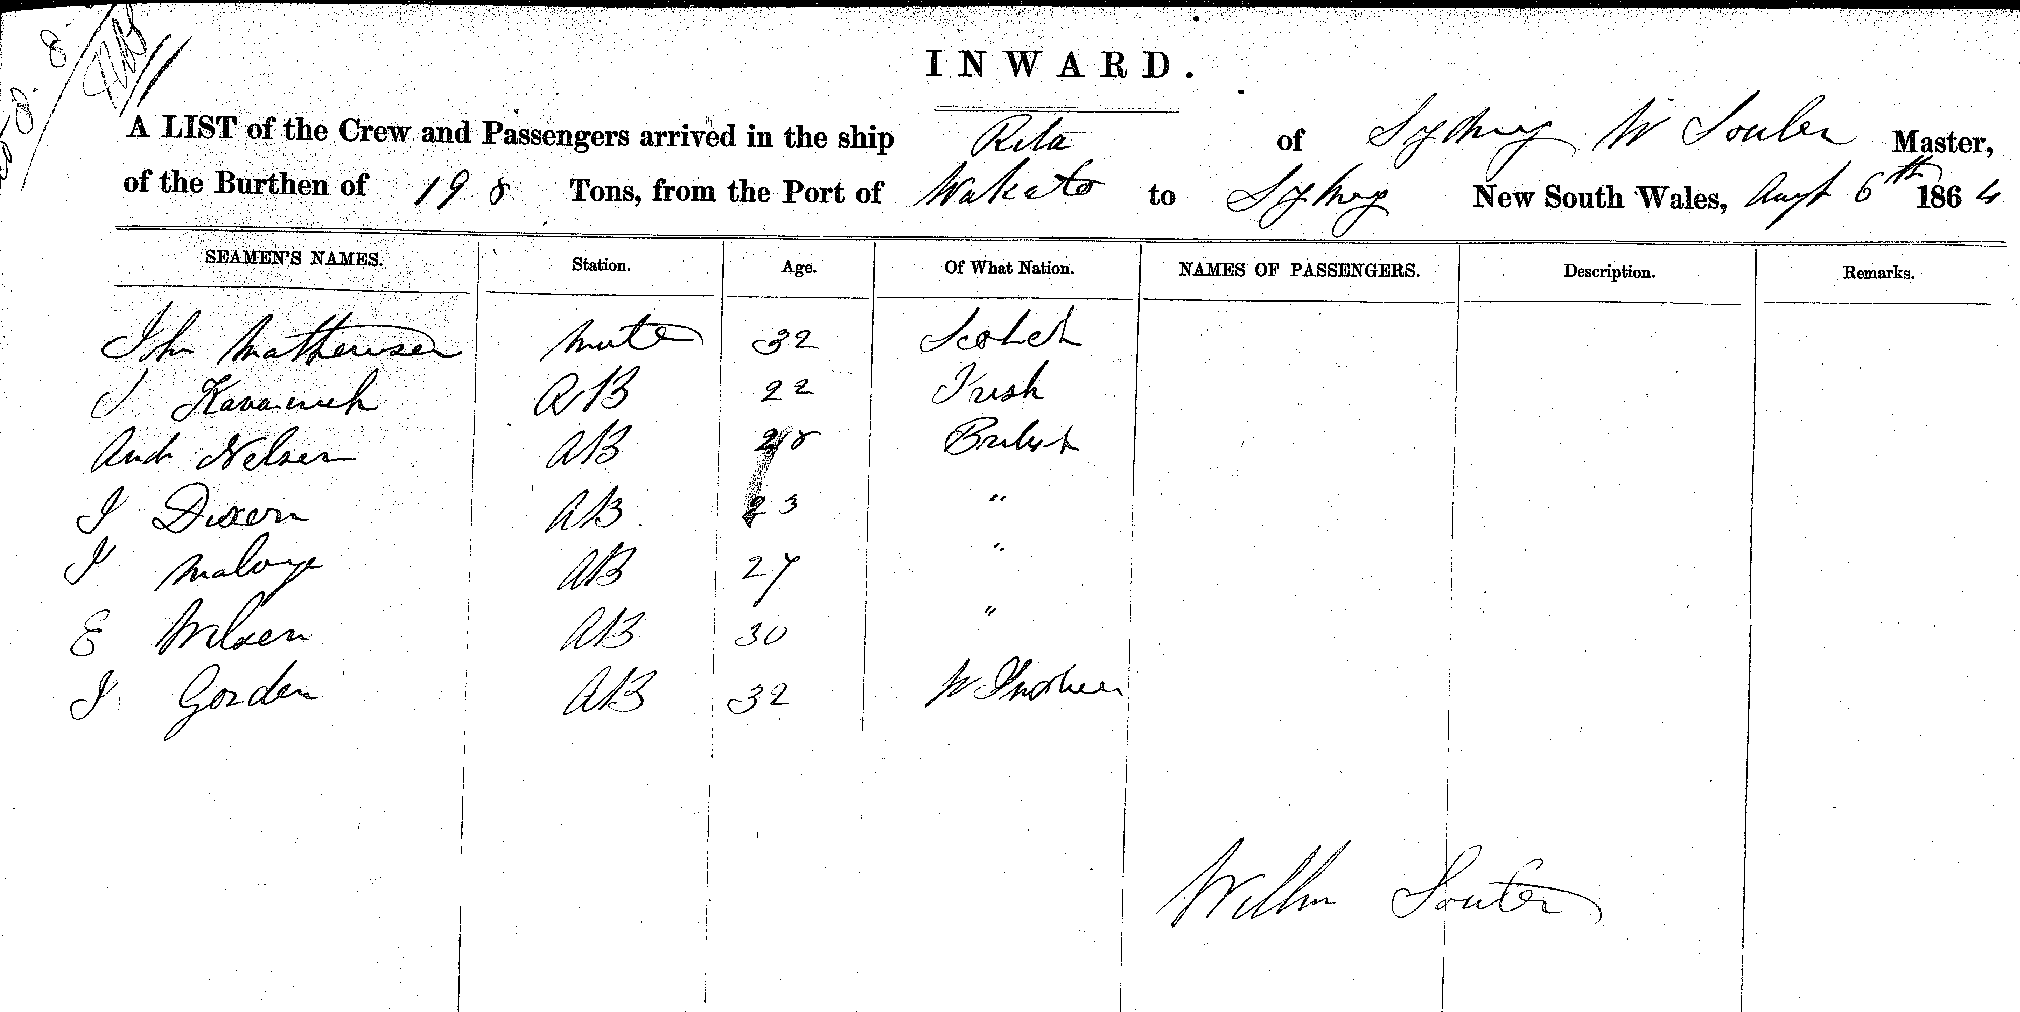 INWARD.
A LIST of the Crew and Passengers arrived in the ship Rita of Sydney W Souter Master,
of the Burthen of 198 Tons, from the Port of Wakato to Sydney New South Wales, Augt 6th 1864
SEAMEN'S NAMES. Station. Age. Of What Nation. NAMES OF PASSENGERS. Description. Remarks.
Jhn Mathewsen Mate 32 Scotch
J Kavanagh AB 22 Irish
And Nelsen AB 28 British
J Dixon AB 23 "
J AB 27 "
E Wilsen AB 30 "
J Gorden AB 32 W
Willm Souter